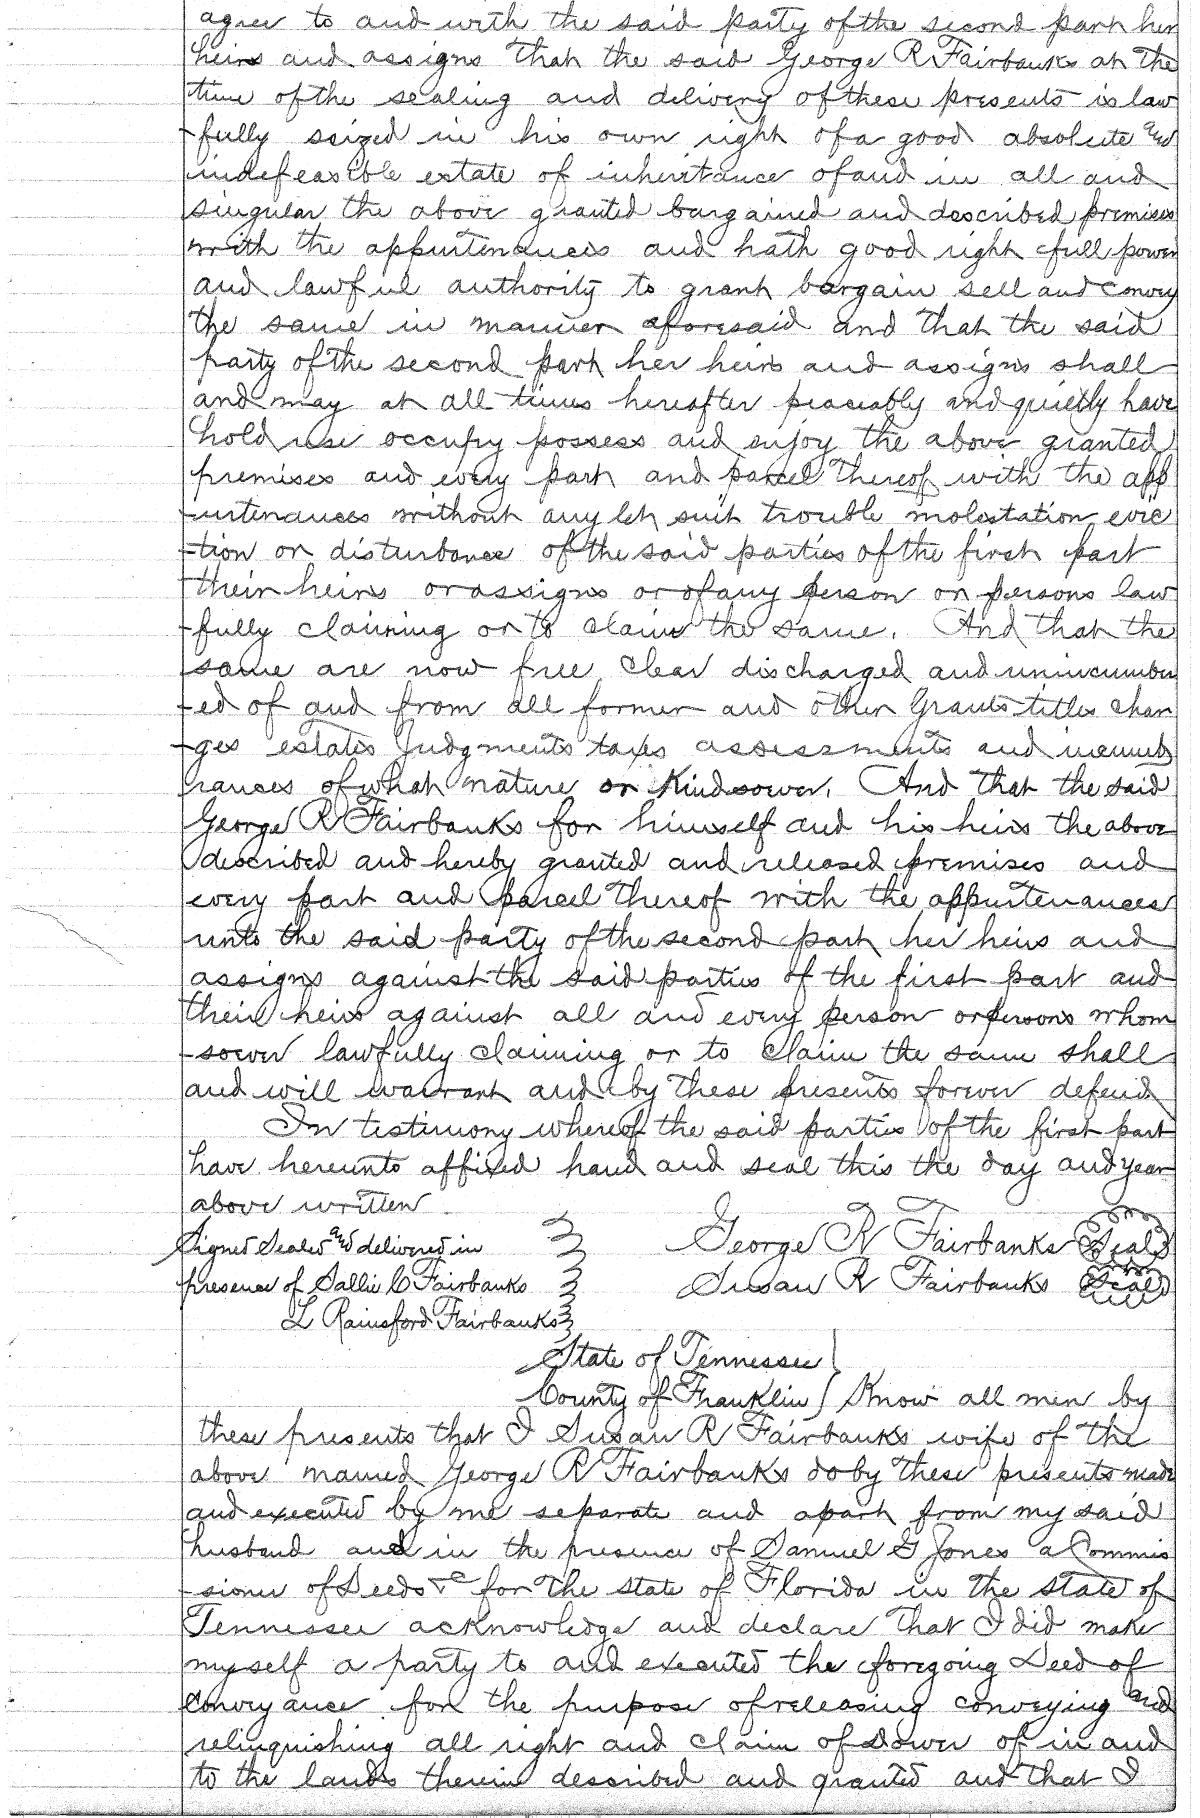 agree to and with the said party of the second part her
heirs and assigns that the said George R Fairbanks at the
time of the sealing and delivery of these presents is law
-fully seized in his own right of a good absolute and
indefeasible estate of inheritance of and in all and
singular the above granted bargained and described premises
with the appurtenances and hath good right full power
and lawful authority to grant bargain sell and convey
the same in manner aforesaid and that the said
party of the second part her heirs and assigns shall
and may at all times hereafter peaceably and quietly have
hold use occupy possess and enjoy the above granted
premises and every part and parcel thereof with the app
-urtenances without any let suit trouble molestation evic
-tion or disturbance of the said parties of the first part
their heirs or assigns or of any person or persons law
-fully claiming or to claim the same. And that the
same are now free clear discharged and unincumber
-ed of and from all former and other Grants titles char
-ges estates Judgments taxes assessments and incumb
rances of what nature or Kind sower. And that the said
George R Fairbanks for himself and his heirs the above
described and hereby granted and released premises and
every part and parcel thereof with the appurtenances
unto the said party of the second part her heirs and
assigns against the said parties of the first part and
their heirs against all and every person or persons whom
-soever lawfully claiming or to claim the same shall
and will warrant and by these presents forever defend
In testimony whereof the said parties of the first part
have hereunto affixed hand and seal this the day and year
above written
Signed Sealed and delivered in George R Fairbanks Seal
presence of Sallie C Fairbanks Susan R Fairbanks Seal
L Rainsford Fairbanks
State of Tennessee
County of Franklin Know all men by
these presents that I Susan R Fairbanks wife of the
above named George R Fairbanks do by these presents made
and executed by me separate and apart from my said
husband and in the presence of Samuel G Jones a Commis
-sioner of Deeds &c for the State of Florida in the State of
Tennessee acknowledge and declare that I did make
myself a party to and executed the foregoing Deed of
Conveyance for the purpose of releasing conveying and
relinquishing all right and claim of Dower of in and
to the lands therein described and granted and that I